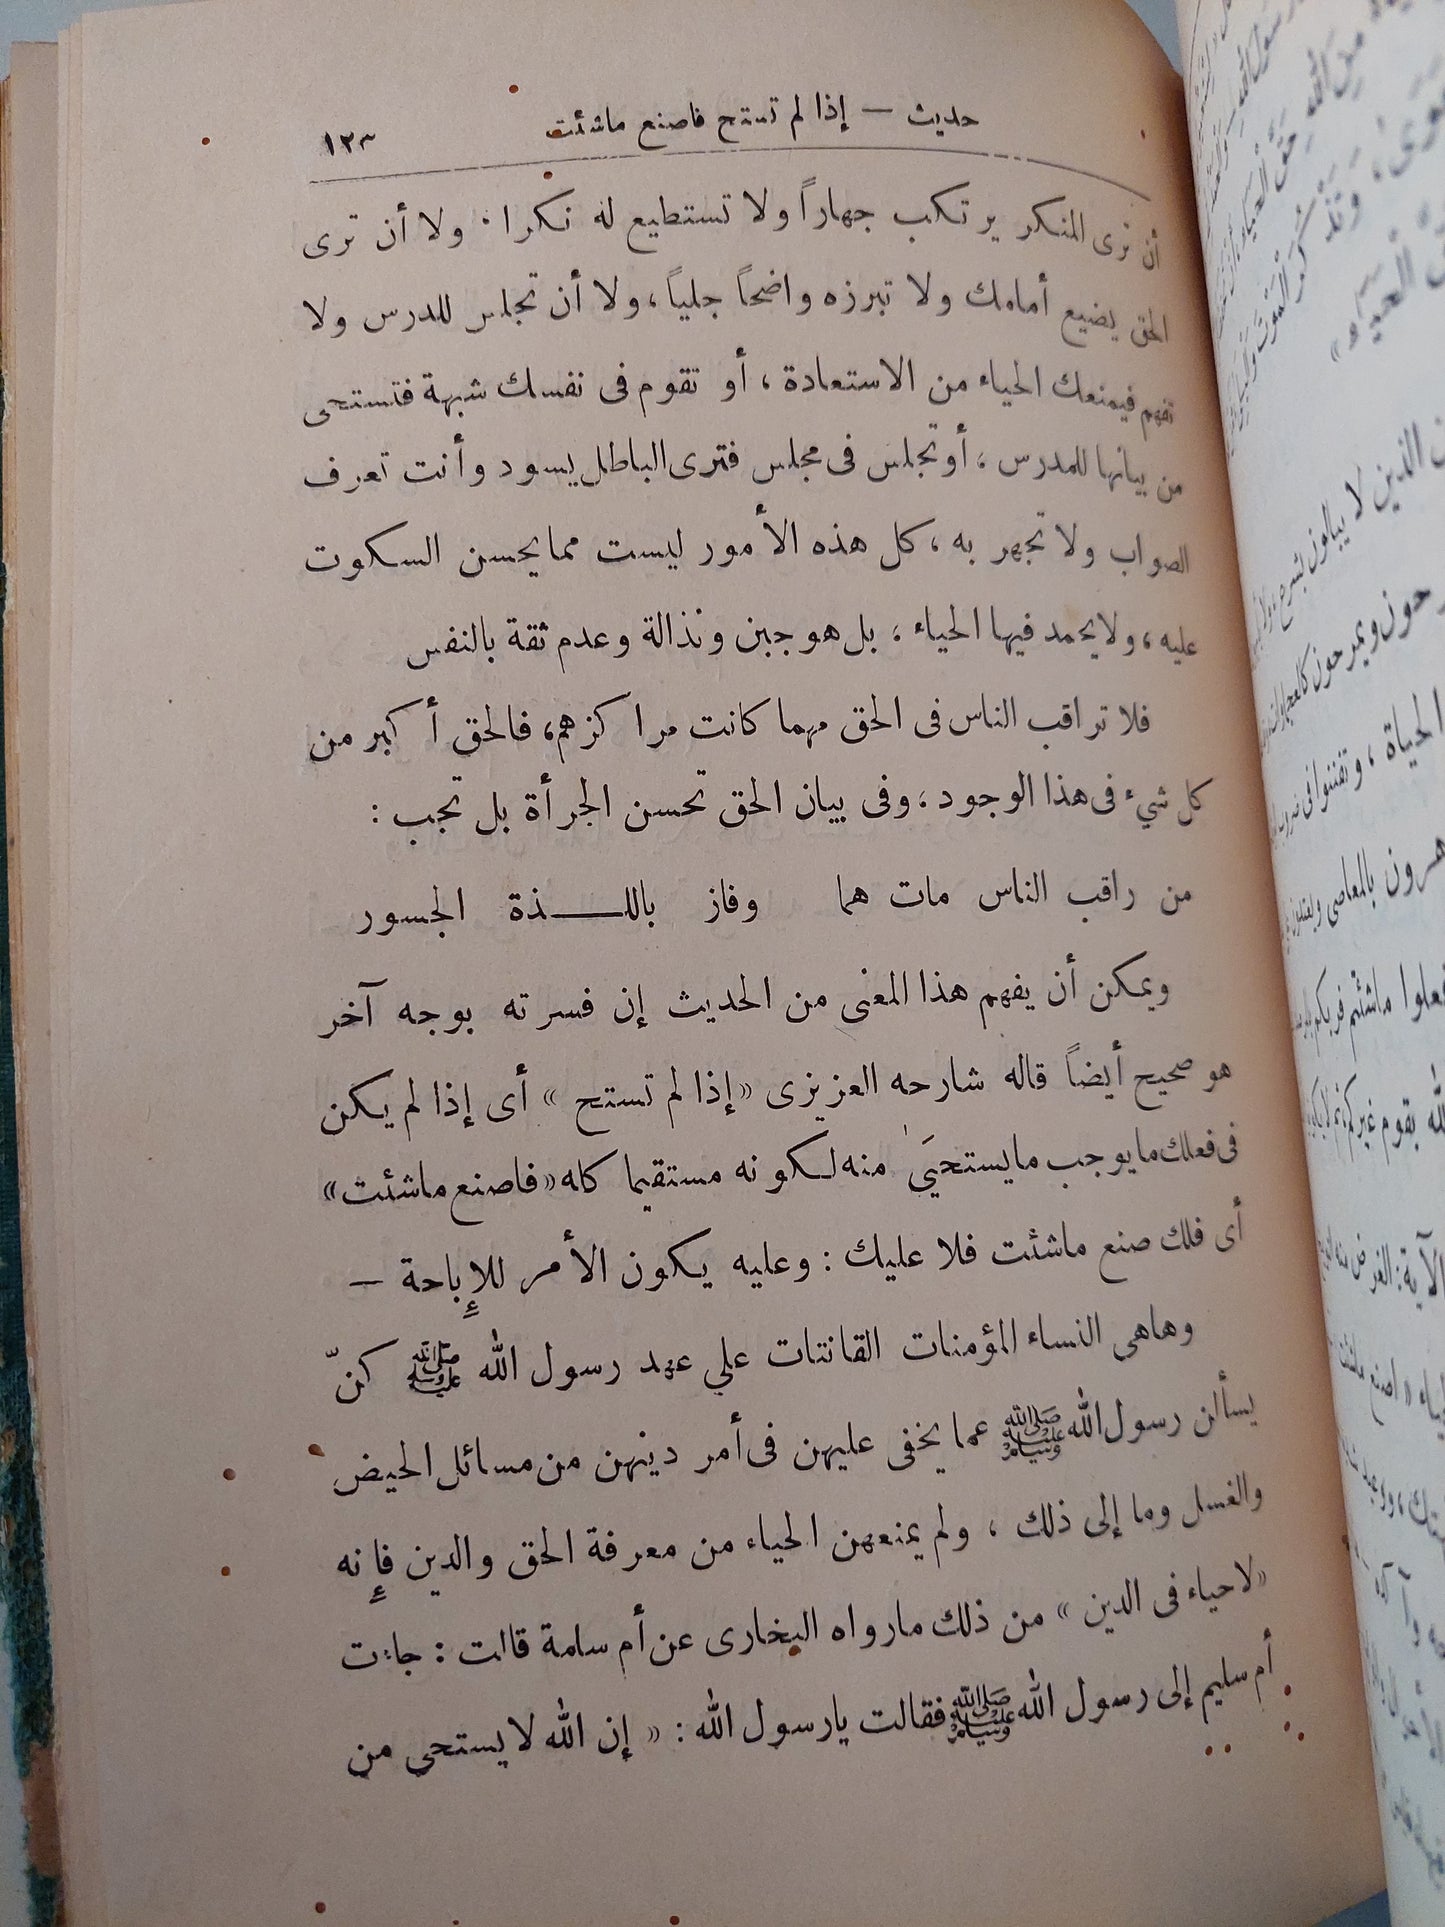 حديث — إذا لم تستح فاصنع ماشئت
١٢٣
أن ترى المنكر يرتكب جهاراً ولا تستطيع له نكرا . ولا أن ترى
الحق يضيع أمامك ولا تبرزه واضحاً جلياً ، ولا أن تجلس للدرس ولا
تفهم فيمنعك الحياء من الاستعادة ، أو تقوم فى نفسك شبهة فتستحى
من بيانها للمدرس ، أو تجلس فى مجلس فترى الباطل يسود وأنت تعرف
الصواب ولا تجهر به ، كل هذه الأمور ليست مما يحسن السكوت
عليه ، ولا يحمد فيها الحياء ، بل هو جبن ونذالة وعدم ثقة بالنفس
فلا تراقب الناس فى الحق مهما كانت مراكزهم ، فالحق أكبر من
كل شيء فى هذا الوجود ، وفى بيان الحق تحسن الجرأة بل تجب :
من راقب الناس مات هما وفاز باللـــذة الجسور
ويمكن أن يفهم هذا المعنى من الحديث إن فسرته بوجه آخر
هو صحيح أيضاً قاله شارحه العزيزى «إذا لم تستح» أى إذا لم يكن
فى فعلك مايوجب مايستحيَى منه لكونه مستقيما كله «فاصنع ماشئت»
أى فلك صنع ماشئت فلا عليك : وعليه يكون الأمر للإباحة —
وهاهى النساء المؤمنات القانتات علي عهد رسول الله ﷺ كنّ
يسألن رسول الله ﷺ عما يخفى عليهن فى أمر دينهن من مسائل الحيض
والغسل وما إلى ذلك ، ولم يمنعهن الحياء من معرفة الحق والدين فإنه
«لاحياء فى الدين» من ذلك مارواه البخارى عن أم سلمة قالت : جاءت
أم سليم إلى رسول الله ﷺ فقالت يارسول الله : « إن الله لا يستحى من